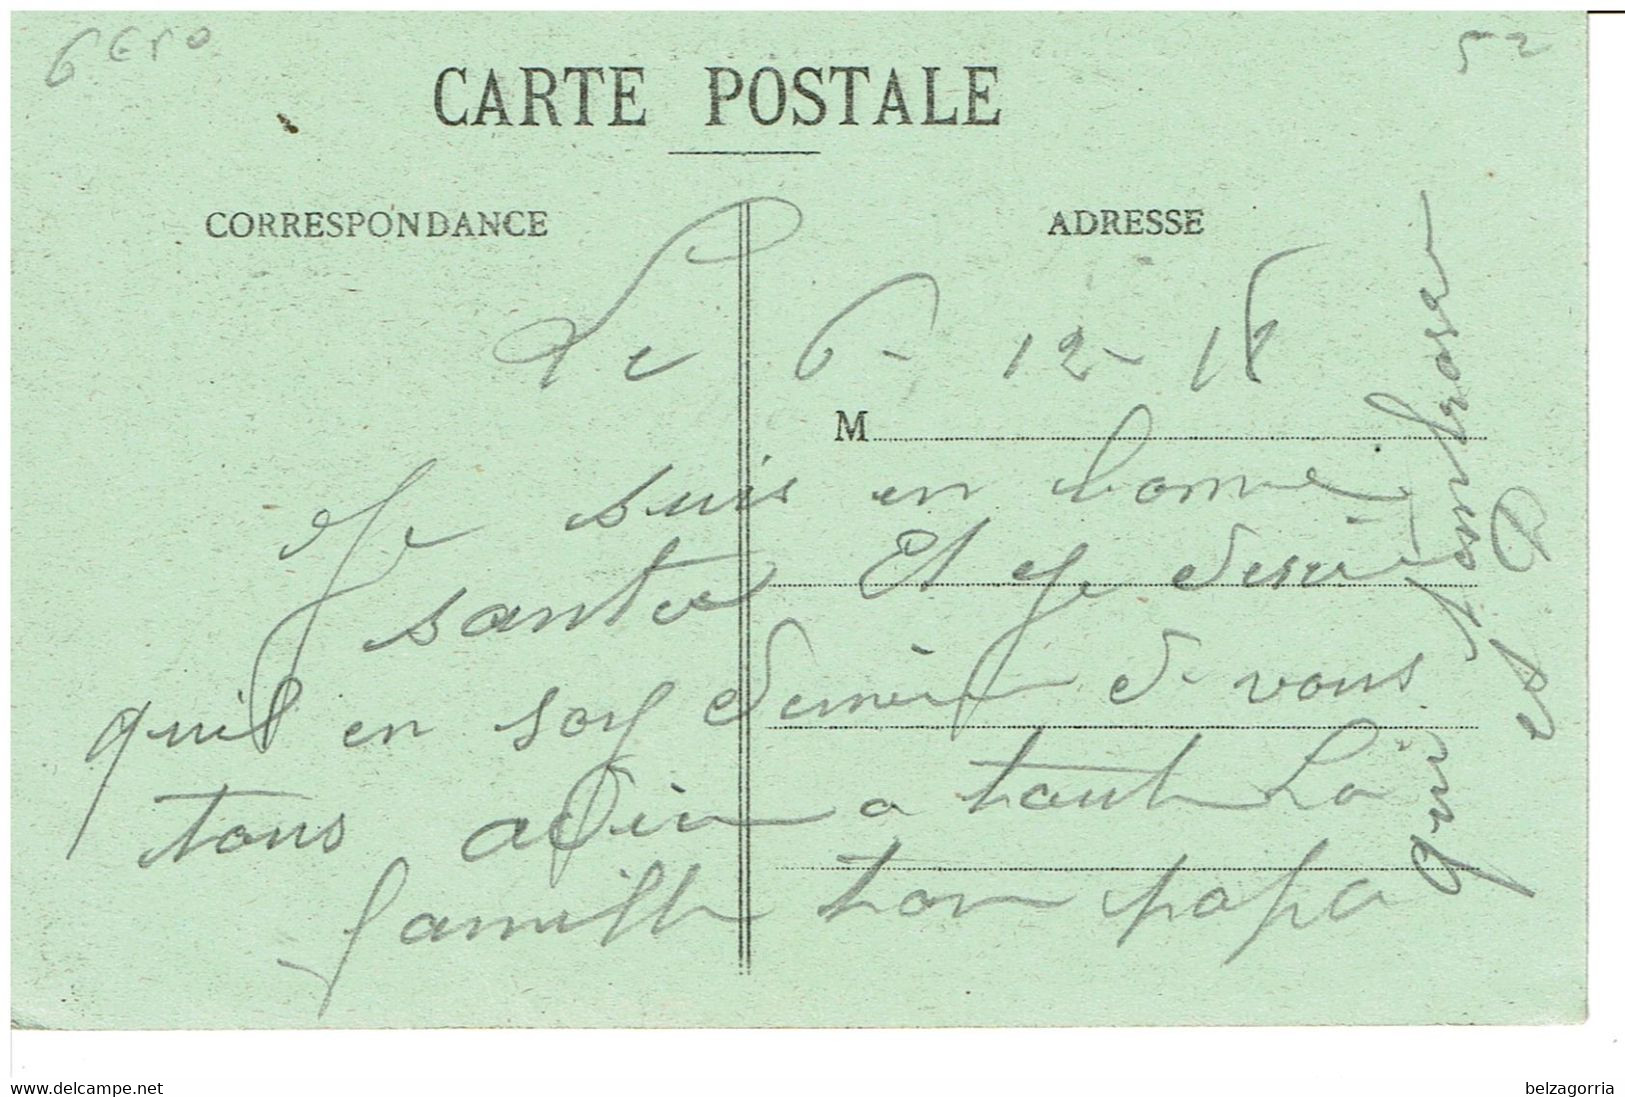 6 € 50
52
CARTE POSTALE
CORRESPONDANCE
ADRESSE
Le 6-12-18
M
Je suis en bonne
santee Et Je desire
quil en soy de vous
tous a a toute La
famille ton papa
qui
et
www.delcampe.net
belzagorria